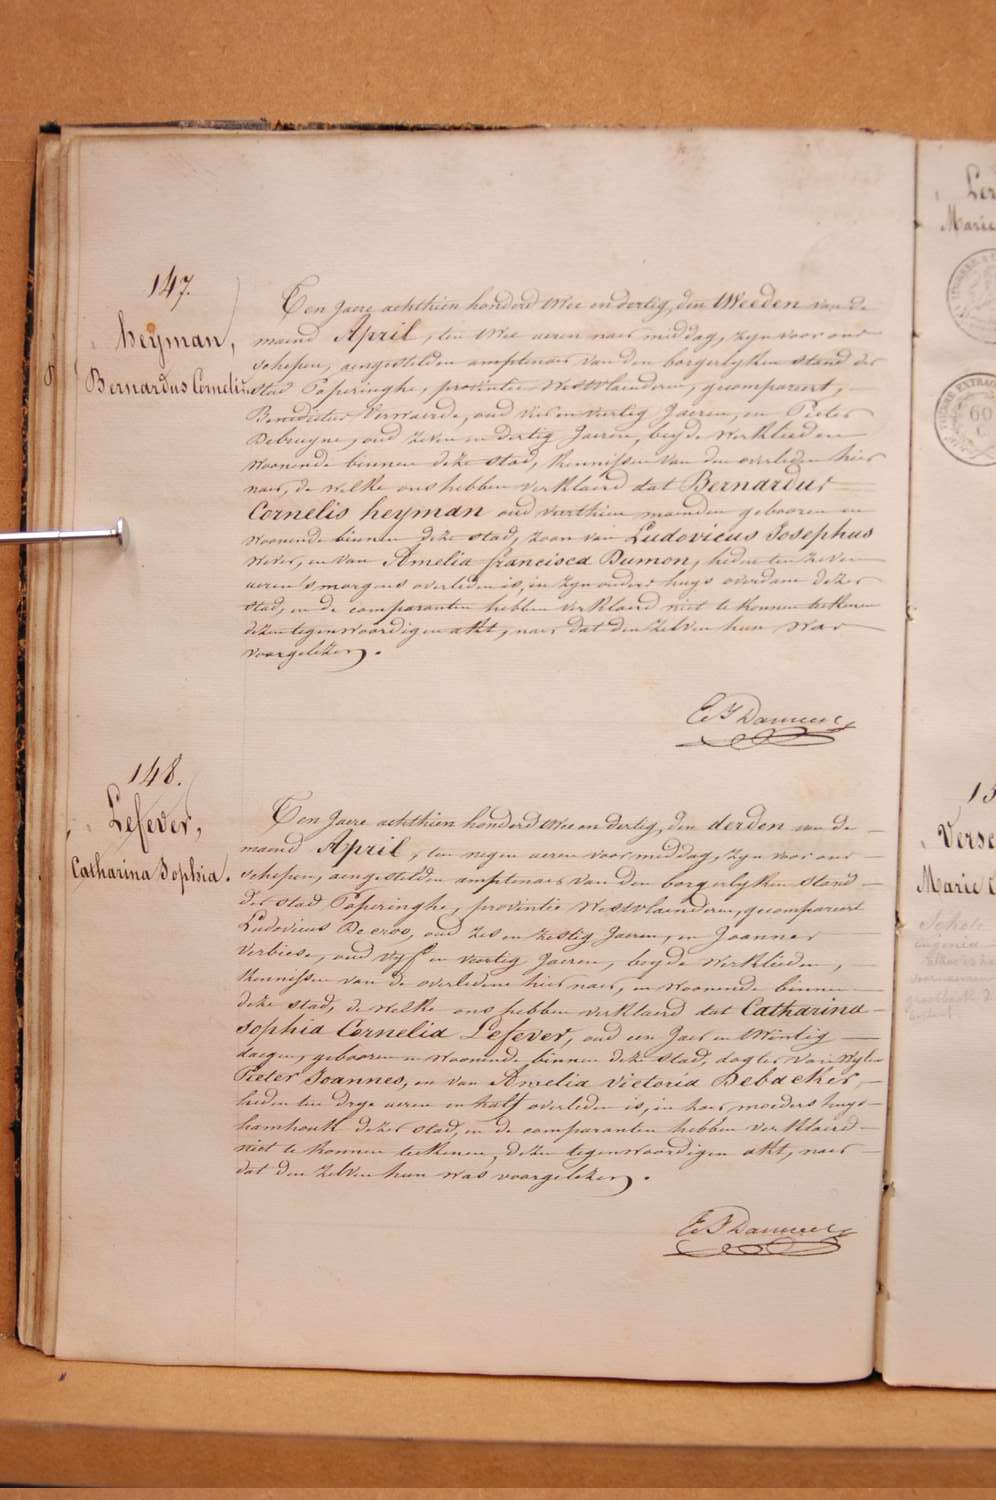 147.
heyman,
Bernardus Cornelius
Ten Jaere achthien honderd twee en dertig, den tweeden van de
maend April, ten twee ueren naer middag, zyn voor ons
schepen, aengestelden amptenaer van den borgerlyken stand der
stad Poperinghe, provintie Westvlaenderen, gecompareert,
Benedictus Verwaerde, oud vier en veertig Jaeren, en Pieter
Debruyne, oud zeven en dertig Jaeren, beyde werklieden
woonende binnen deze stad, kennissen van den overleden hier
naer, de welke ons hebben verklaerd dat Bernardus
Cornelis heyman oud veerthien maenden gebooren en
woonende binnen deze stad, zoon van Ludovicus Josephus
wever, en van Amelia francisca Dumon, heden ten zeven
ueren 's morgens overleden is, in zyn ouders huys overdam dezer
stad, en de comparanten hebben verklaerd niet te konnen teekenen
dezen tegenwoordigen akt, naer dat den zelven hun was
voorgelezen.
148.
Lefever,
Catharina Sophia.
Ten Jaere achthien honderd twee en dertig, den derden van de
maend April, ten negen ueren voor middag, zyn voor ons
schepen, aengestelden amptenaer van den borgerlyken stand
der stad Poperinghe, provintie Westvlaenderen, gecompareert
Ludovicus Decros, oud zes en zestig Jaeren, en Joannes
Verbiese, oud vyf en veertig Jaeren, beyde werklieden,
kennissen van de overledene hier naer, en woonende binnen
deze stad, de welke ons hebben verklaerd dat Catharina
Sophia Cornelia Lefever, oud een Jaer en twintig
daegen, gebooren en woonende binnen deze stad, dogter van wylen
Pieter Joannes, en van Amelia Victoria Debacker,
heden ten drye ueren en half overleden is, in haer moeders huys
hamhoek dezer stad, en de comparanten hebben verklaerd
niet te konnen teekenen, dezen tegenwoordigen akt, naer
dat den zelven hun was voorgelezen.
Marie
60
Verse
Marie C